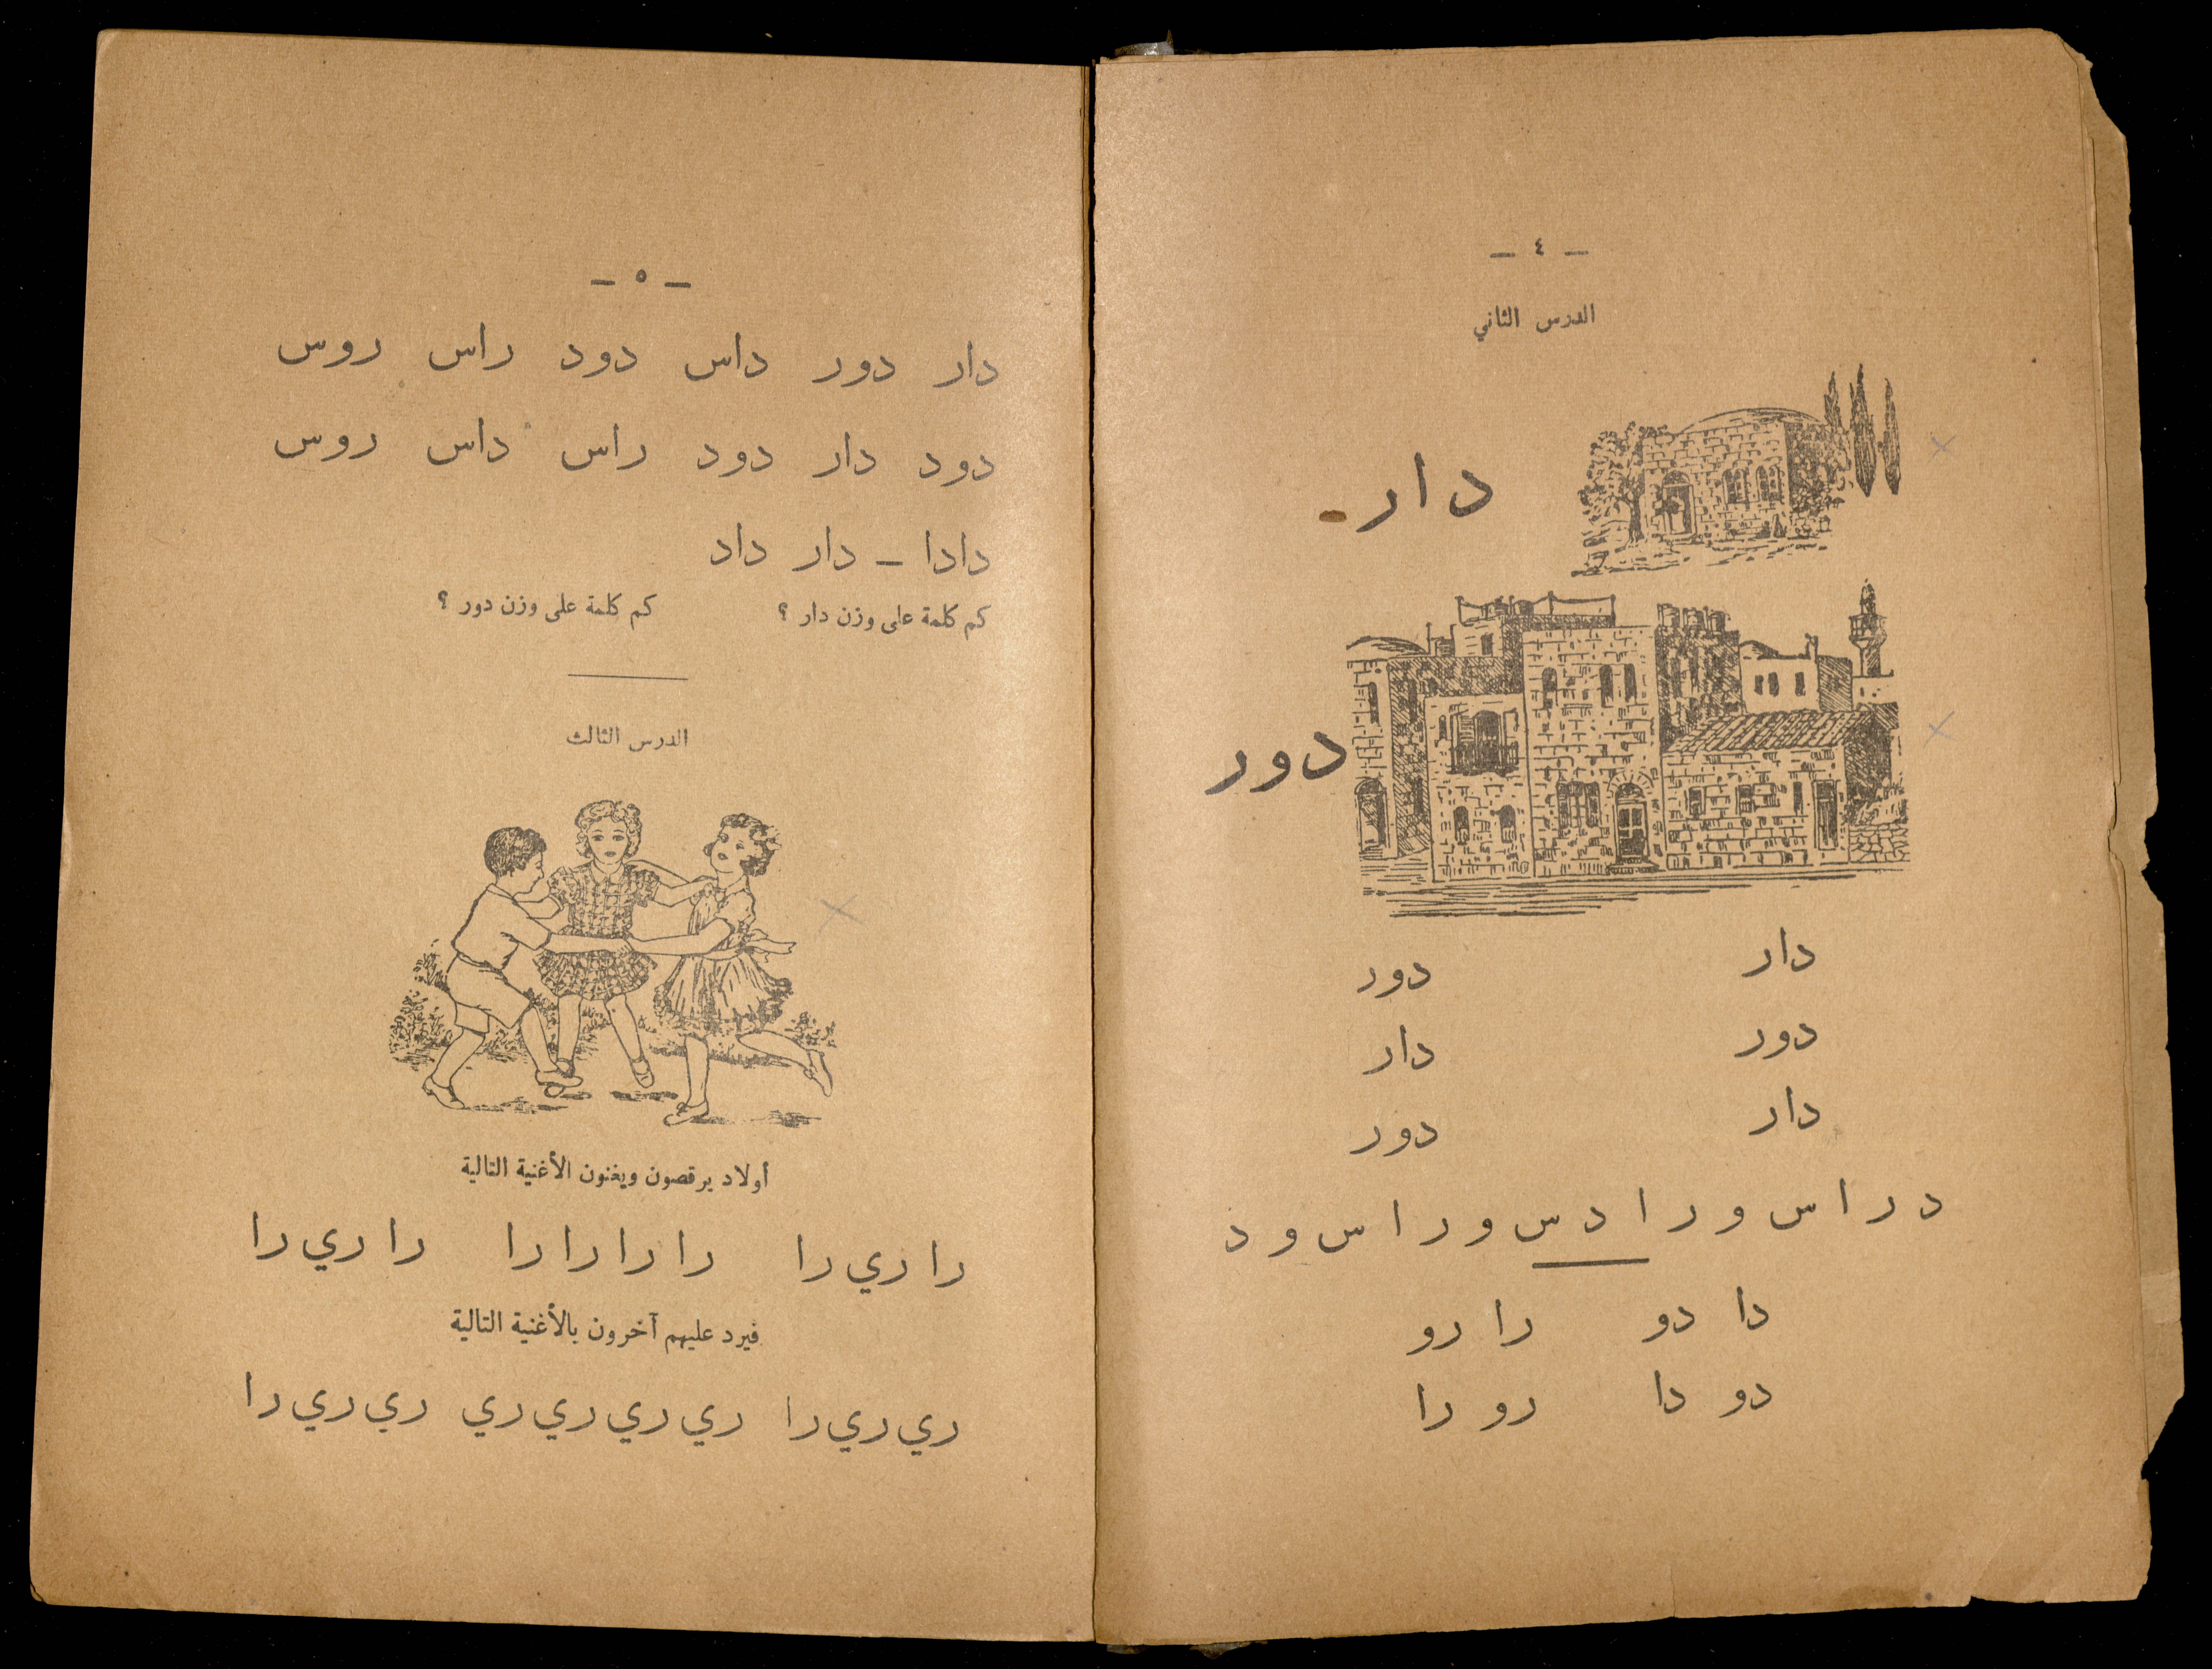 — ٤ —
الدرس الثاني
دار
دور
دار دور
دور دار
دار دور
د ر ا س و ر ا د س و ر ا س و د
دا دو را رو
دو دا رو را
— ٥ —
دار دور داس دود راس روس
دود دار دود راس داس روس
دادا – دار داد
كم كلمة على وزن دار ؟ كم كلمة على وزن دور ؟
الدرس الثالث
أولاد يرقصون ويغنون الأغنية التالية
را ري را را را را را را ري را
فيرد عليهم آخرون بالأغنية التالية
ري ري را ري ري ري ري ري ري را